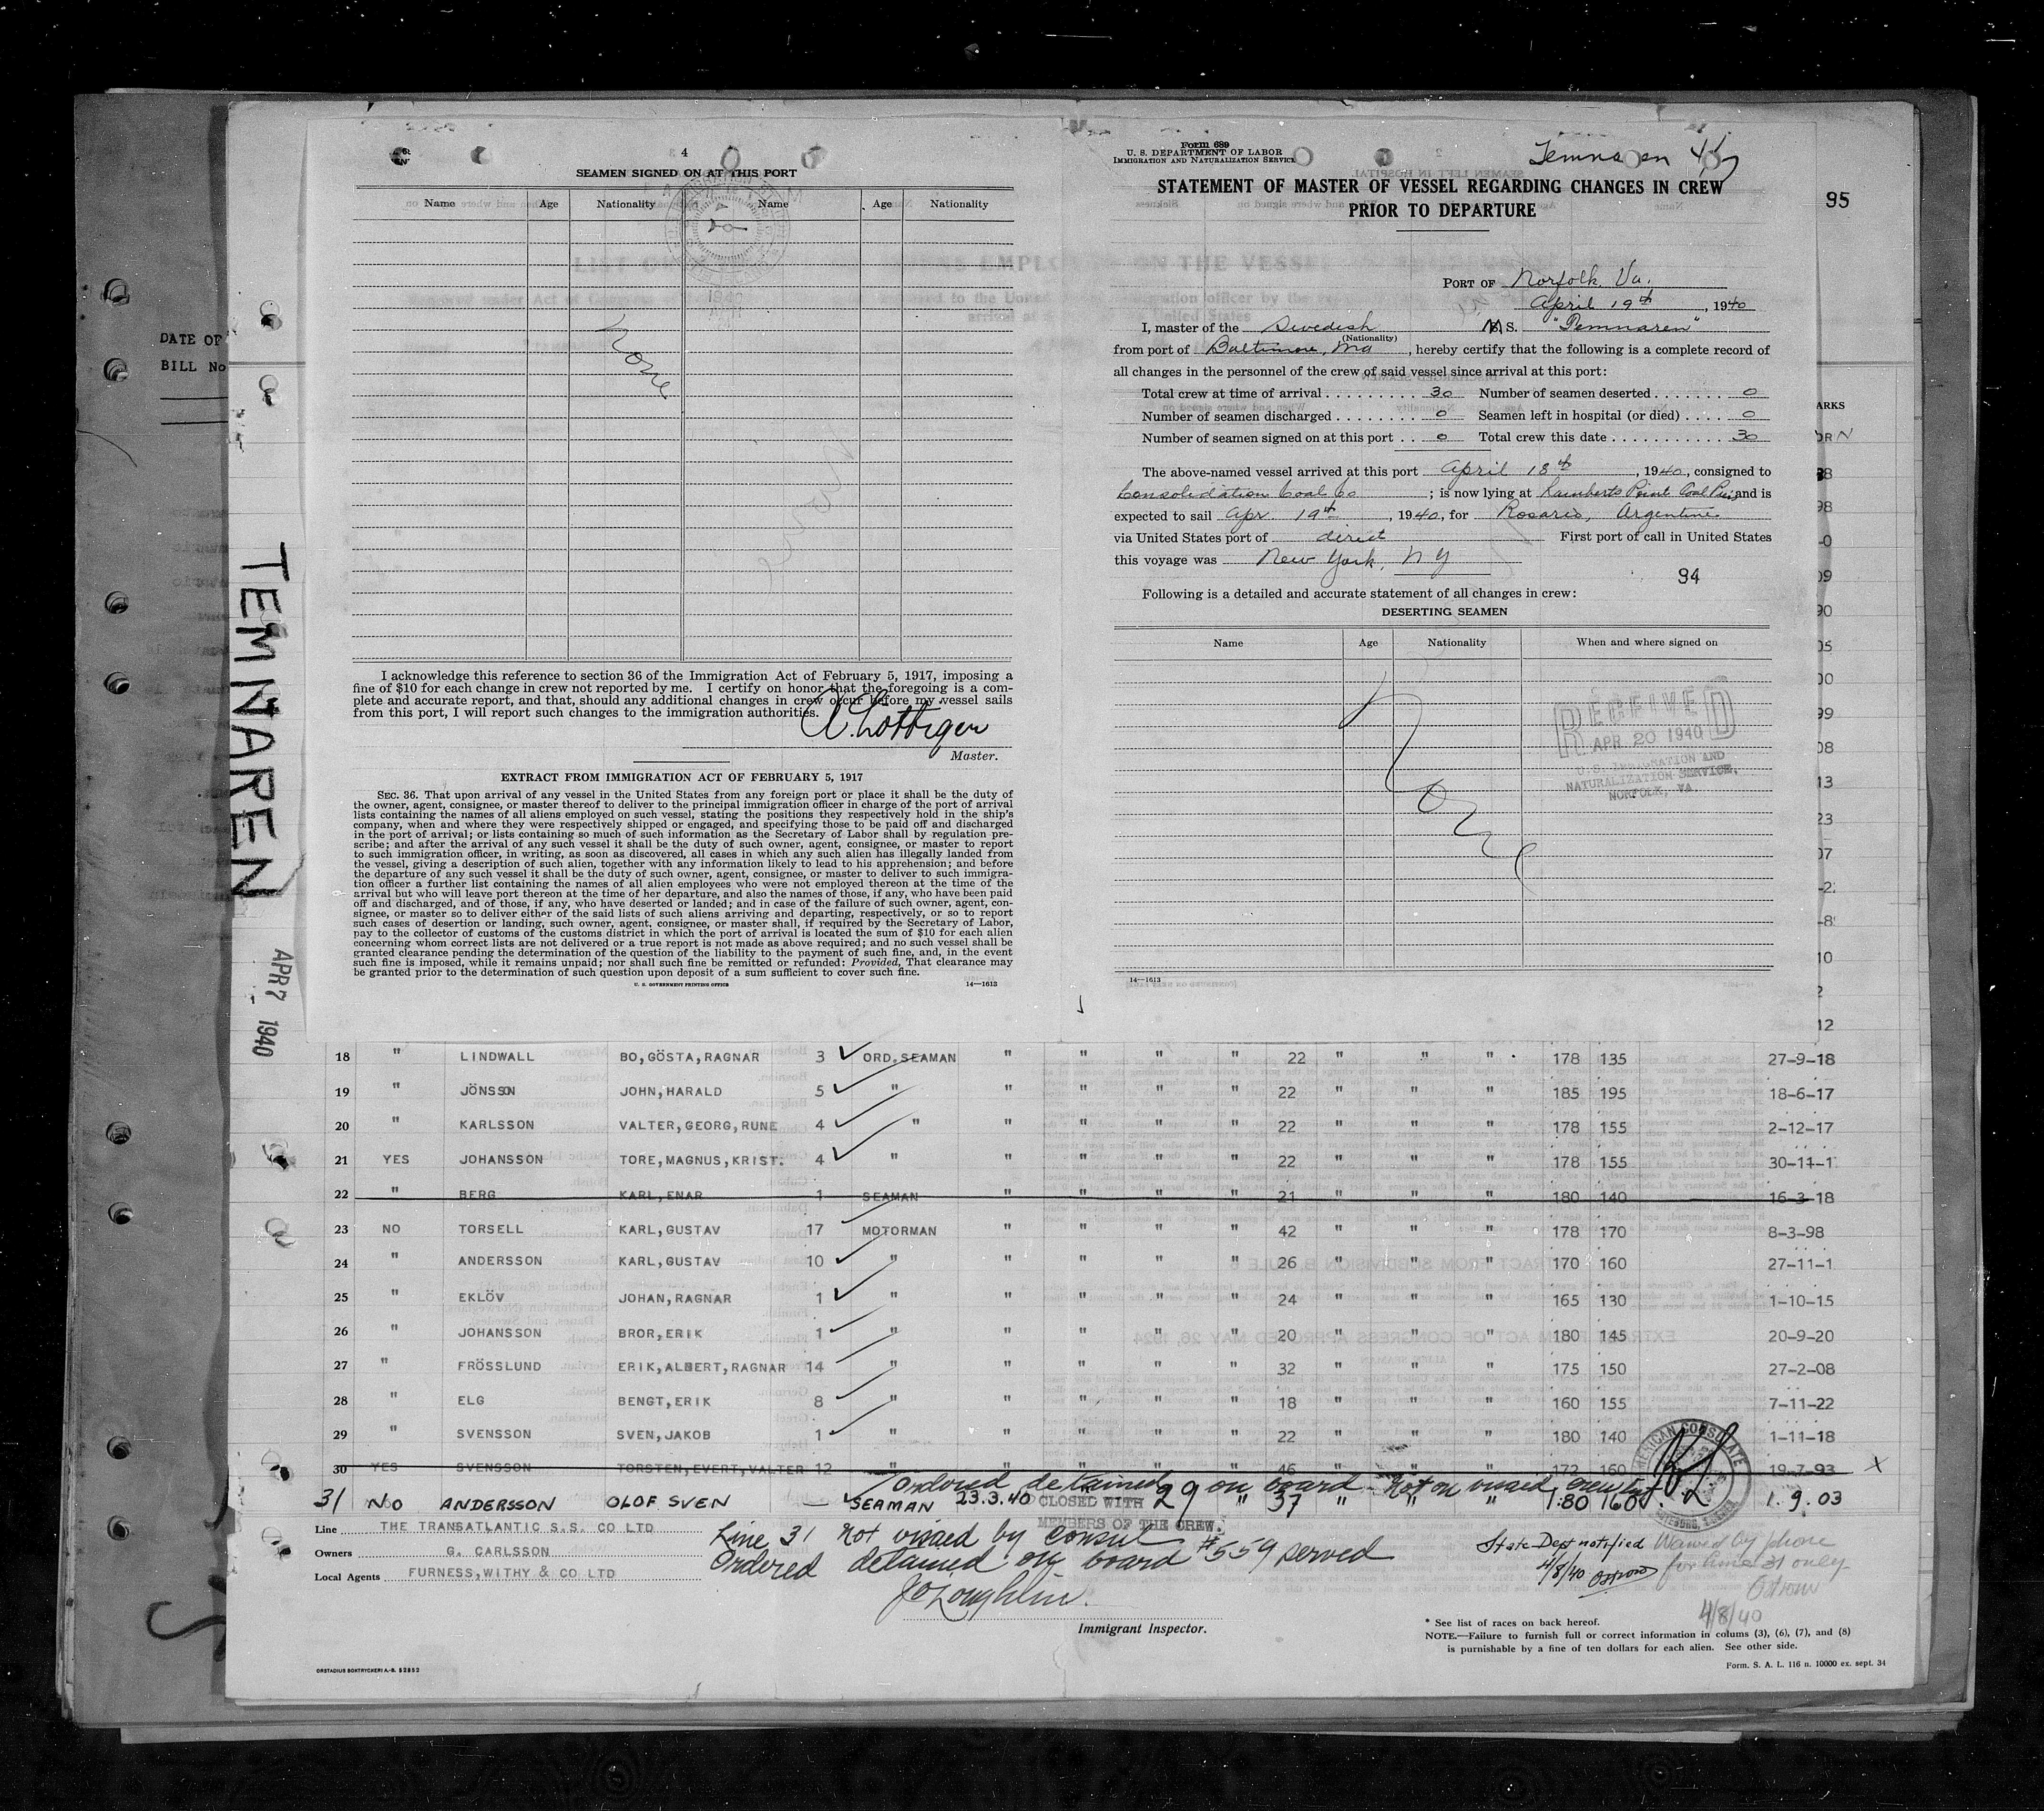 DATE OF
BILL No
TEMNAREN
APR 7 1940
4
SEAMEN SIGNED ON AT THIS PORT
Name Age Nationality Name Age Nationality
None
I acknowledge this reference to section 36 of the Immigration Act of February 5, 1917, imposing a
fine of $10 for each change in crew not reported by me. I certify on honor that the foregoing is a com-
plete and accurate report, and that, should any additional changes in crew occur before my vessel sails
from this port, I will report such changes to the immigration authorities.
Master.
EXTRACT FROM IMMIGRATION ACT OF FEBRUARY 5, 1917
SEC. 36. That upon arrival of any vessel in the United States from any foreign port or place it shall be the duty of
the owner, agent, consignee, or master thereof to deliver to the principal immigration officer in charge of the port of arrival
lists containing the names of all aliens employed on such vessel, stating the positions they respectively hold in the ship's
company, when and where they were respectively shipped or engaged, and specifying those to be paid off and discharged
in the port of arrival; or lists containing so much of such information as the Secretary of Labor shall by regulation pre-
scribe; and after the arrival of any such vessel it shall be the duty of such owner, agent, consignee, or master to report
to such immigration officer, in writing, as soon as discovered, all cases in which any such alien has illegally landed from
the vessel, giving a description of such alien, together with any information likely to lead to his apprehension; and before
the departure of any such vessel it shall be the duty of such owner, agent, consignee, or master to deliver to such immigra-
tion officer a further list containing the names of all alien employees who were not employed thereon at the time of the
arrival but who will leave port thereon at the time of her departure, and also the names of those, if any, who have been paid
off and discharged, and of those, if any, who have deserted or landed; and in case of the failure of such owner, agent, con-
signee, or master so to deliver either of the said lists of such aliens arriving and departing, respectively, or so to report
such cases of desertion or landing, such owner, agent, consignee, or master shall, if required by the Secretary of Labor,
pay to the collector of customs of the customs district in which the port of arrival is located the sum of $10 for each alien
concerning whom correct lists are not delivered or a true report is not made as above required; and no such vessel shall be
granted clearance pending the determination of the question of the liability to the payment of such fine, and, in the event
such fine is imposed, while it remains unpaid; nor shall such fine be remitted or refunded: Provided, That clearance may
be granted prior to the determination of such question upon deposit of a sum sufficient to cover such fine.
U. S. GOVERNMENT PRINTING OFFICE 14—1613
Form 689
U. S. DEPARTMENT OF LABOR
IMMIGRATION AND NATURALIZATION SERVICE
STATEMENT OF MASTER OF VESSEL REGARDING CHANGES IN CREW
PRIOR TO DEPARTURE
95
PORT OF Norfolk, Va.
April 19th, 1940
I, master of the Swedish M S. "Temnaren"
(Nationality)
from port of Baltimore, Md, hereby certify that the following is a complete record of
all changes in the personnel of the crew of said vessel since arrival at this port:
Total crew at time of arrival 30 Number of seamen deserted 0
Number of seamen discharged 0 Seamen left in hospital (or died) 0
Number of seamen signed on at this port 0 Total crew this date 30
The above-named vessel arrived at this port April 18th, 1940, consigned to
Consolidation Coal Co; is now lying at Lamberts Point Coal Pier, and is
expected to sail Apr 19th, 1940, for Rosario, Argentine
via United States port of direct First port of call in United States
this voyage was New York, N Y
94
Following is a detailed and accurate statement of all changes in crew:
DESERTING SEAMEN
Name Age Nationality When and where signed on
None
RECEIVED
APR 20 1940
U.S. IMMIGRATION AND
NATURALIZATION SERVICE,
NORFOLK, VA.
14—1613
18 " LINDWALL BO,GÖSTA,RAGNAR 3 ORD.SEAMAN " " " " 22 " " " 178 135 27-9-18
19 " JÖNSSON JOHN,HARALD 5 " " " " " 22 " " " 185 195 18-6-17
20 " KARLSSON VALTER,GEORG,RUNE 4 " " " " " 22 " " " 178 155 2-12-17
21 YES JOHANSSON TORE,MAGNUS,KRIST. 4 " " " " " 22 " " " 178 155 30-11-1
22 " BERG KARL,ENAR 1 SEAMAN " " " " 21 " " " 180 140 16-3-18
23 NO TORSELL KARL,GUSTAV 17 MOTORMAN " " " " 42 " " " 178 170 8-3-98
24 " ANDERSSON KARL,GUSTAV 10 " " " " " 26 " " " 170 160 27-11-1
25 " EKLÖV JOHAN,RAGNAR 1 " " " " " 24 " " " 165 130 1-10-15
26 " JOHANSSON BROR,ERIK 1 " " " " " 20 " " " 180 145 20-9-20
27 " FRÖSSLUND ERIK,ALBERT,RAGNAR 14 " " " " " 32 " " " 175 150 27-2-08
28 " ELG BENGT,ERIK 8 " " " " " 18 " " " 160 155 7-11-22
29 " SVENSSON SVEN,JAKOB 1 " " " " " 22 " " " 180 140 1-11-18
30 YES SVENSSON TORSTEN,EVERT,VALTER 12 " " " " " 46 " " " 172 160 19-7-93 X
Ordered detained on board - Not on visaed crew list.
31 NO ANDERSSON OLOF SVEN — SEAMAN 23.3.40 CLOSED WITH 29 " 37 " " " 1.80 160 1.9.03
MEMBERS OF THE CREW.
AMERICAN CONSULATE
Line THE TRANSATLANTIC S.S. CO LTD
Owners G. CARLSSON
Local Agents FURNESS,WITHY & CO LTD
Line 31 not visaed by Consul
Ordered detained on board #559 served
Immigrant Inspector.
State Dept notified
4/8/40
Waived by phone
for line 31 only
4/8/40
* See list of races on back hereof.
NOTE.—Failure to furnish full or correct information in colums (3), (6), (7), and (8)
is punishable by a fine of ten dollars for each alien. See other side.
Form. S. A. L. 116 n. 10000 ex. sept. 34
ORSTADIUS BOKTRYCKERI A.-B. 52852